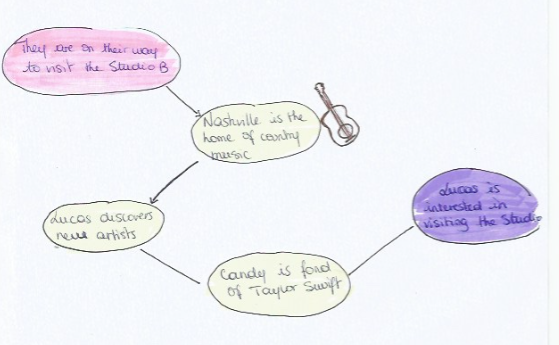 They are on their way
to visit the Studio B
Nashville is the
home of country
music
Lucas discovers
new artists
Candy is fond
of Taylor Swift
Lucas is
intersted in
visiting the Studio